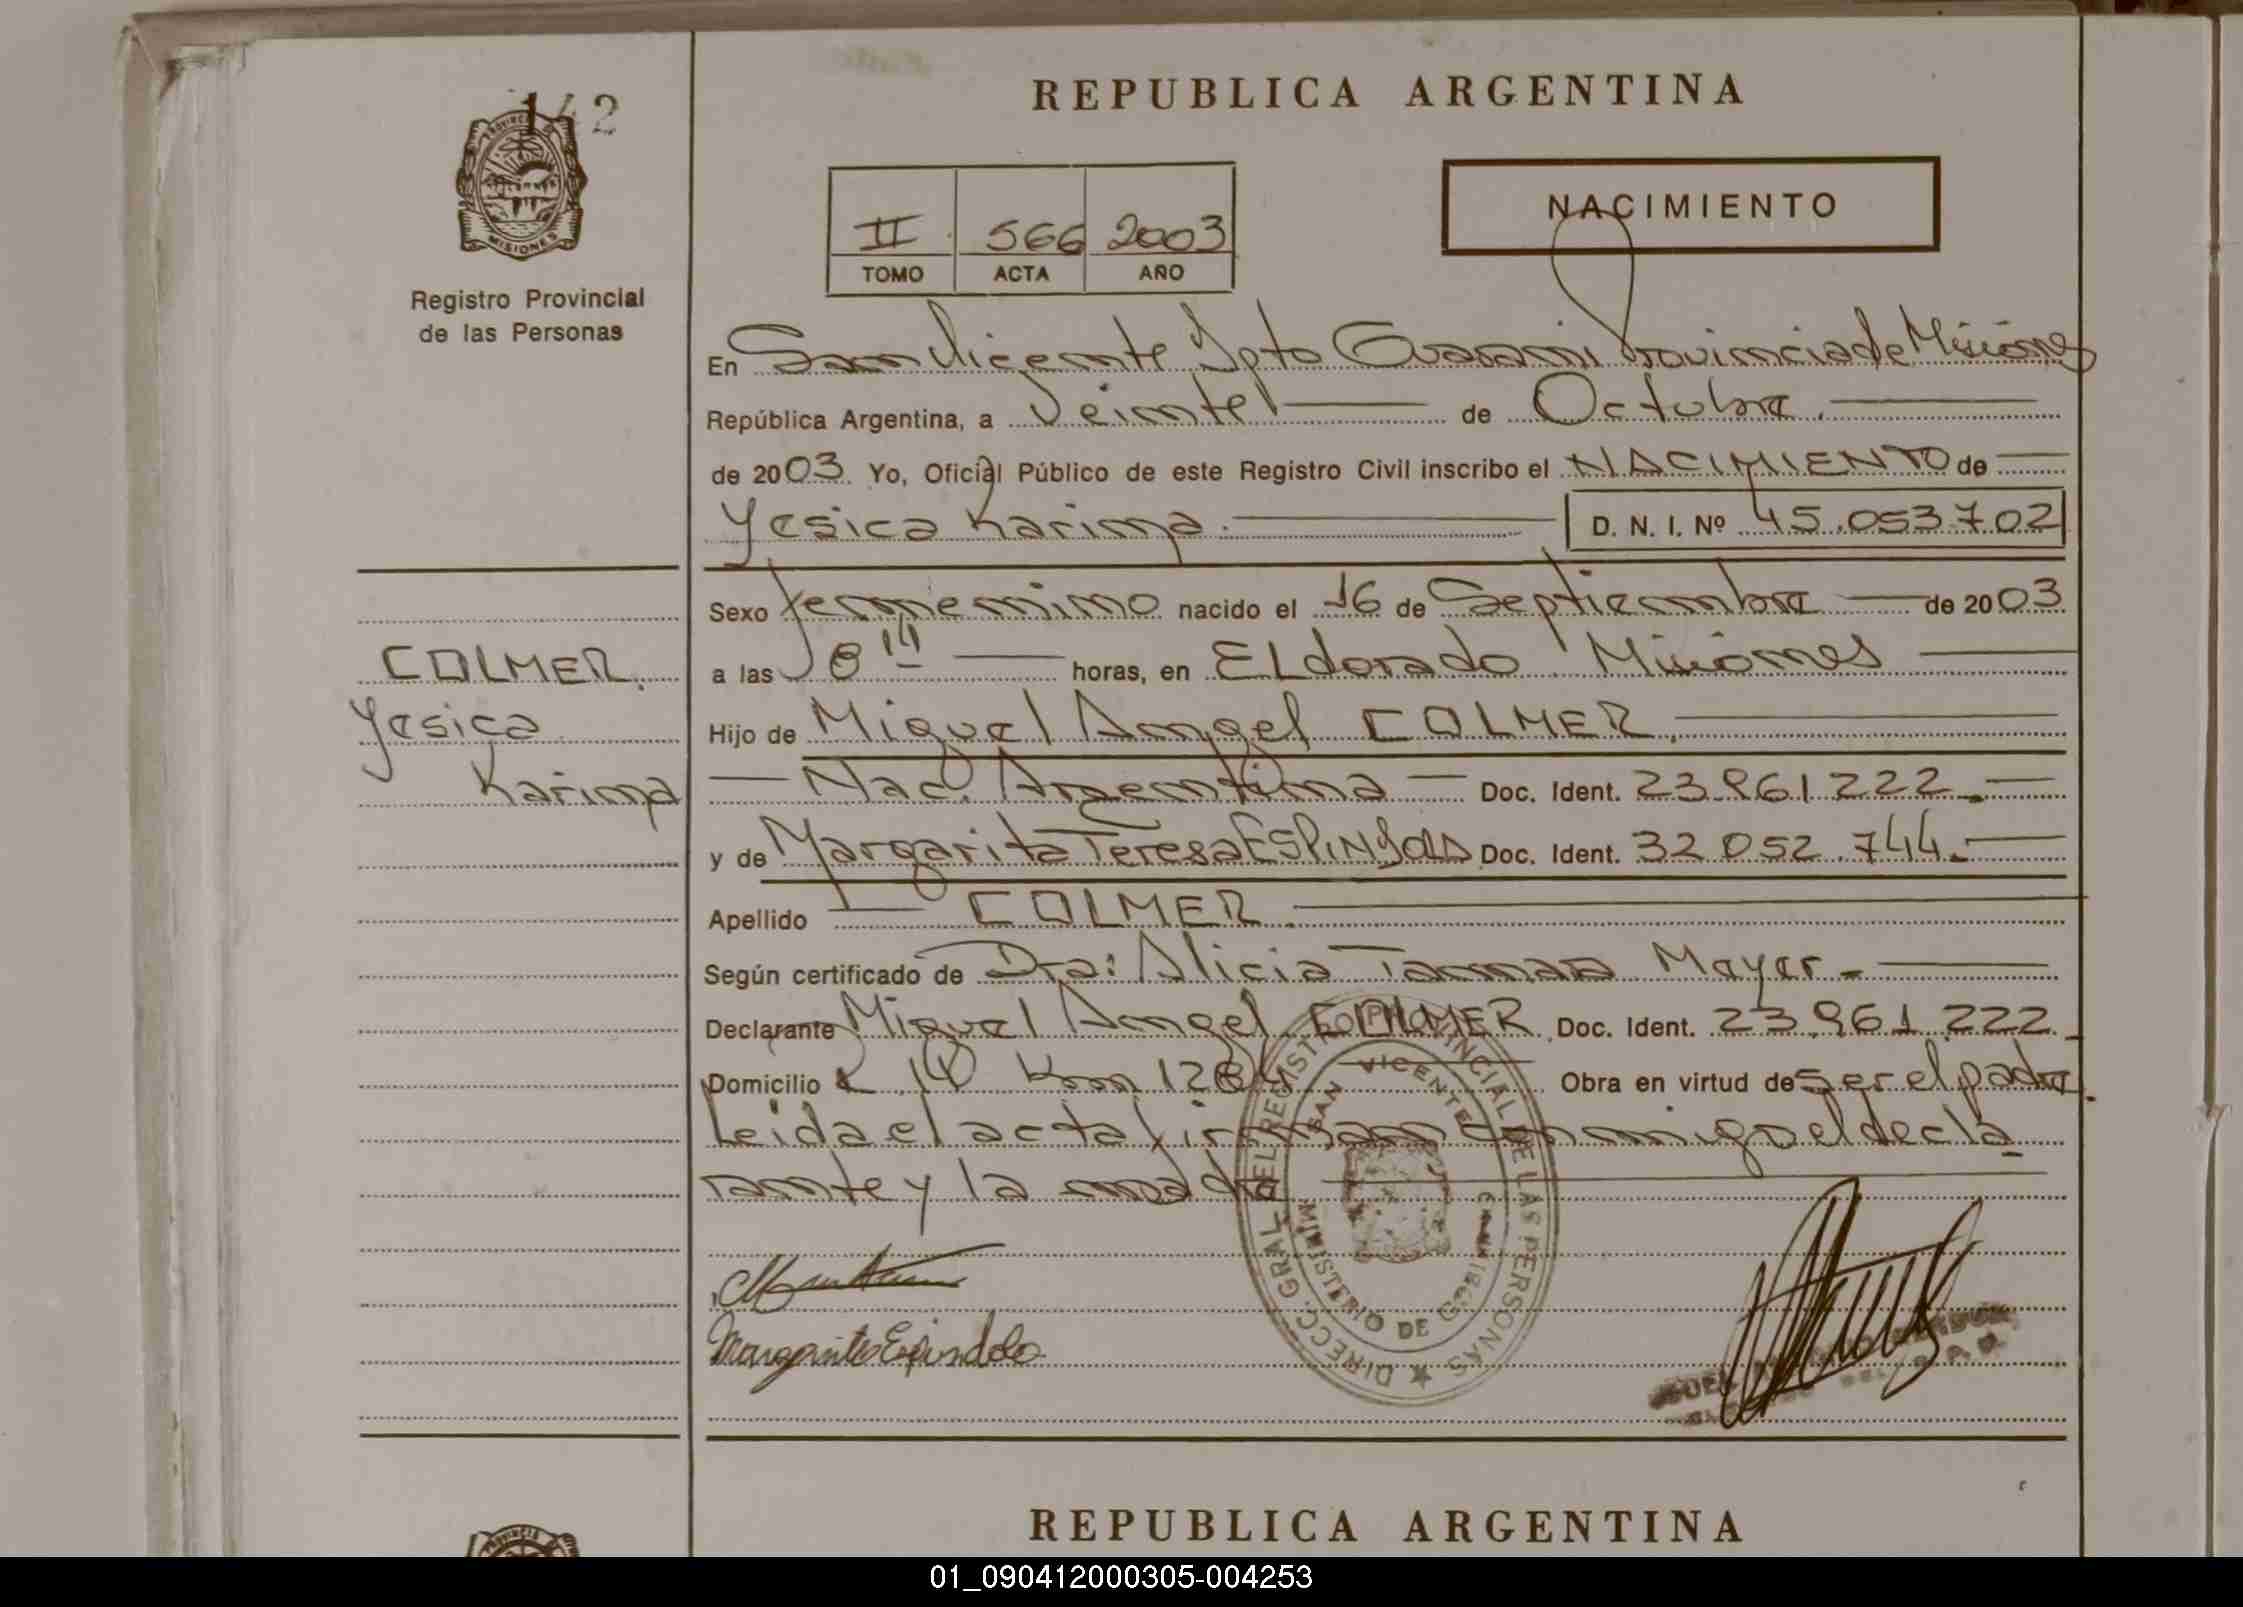 142
PROVINCIA DE
MISIONES
Registro Provincial
de las Personas
COLMER.
Yesica
Karina
REPUBLICA ARGENTINA
II 566 2003
TOMO ACTA AÑO
NACIMIENTO
En San Vicente Dpto Guarani Provincia de Misiones
República Argentina, a Veinte de Octubre.
de 2003. Yo, Oficial Público de este Registro Civil inscribo el NACIMIENTO de
Yesica Karina. D. N. I. Nº 45.053.702
Sexo femenino nacido el 16 de Septiembre de 2003
a las horas, en ELdorado Misiones
Hijo de Miguel Angel COLMER.
Nac. Argentina Doc. Ident. 23.961.222.
y de Margarita Teresa Doc. Ident. 32.052.744.
Apellido COLMER.
Según certificado de Dra: Alicia Mayer.
Declarante Miguel Angel COLMER Doc. Ident. 23.961.222.
Domicilio R. 14 Km Obra en virtud de ser el padre.
Leida el acta firman conmigo el decla
rante y la madre
DIRECC. GRAL. DEL REGISTRO PROVINCIAL DE LAS PERSONAS
SAN VICENTE
MINISTERIO DE GOBIERNO
Margarita Espindola
REPUBLICA ARGENTINA
01_090412000305-004253